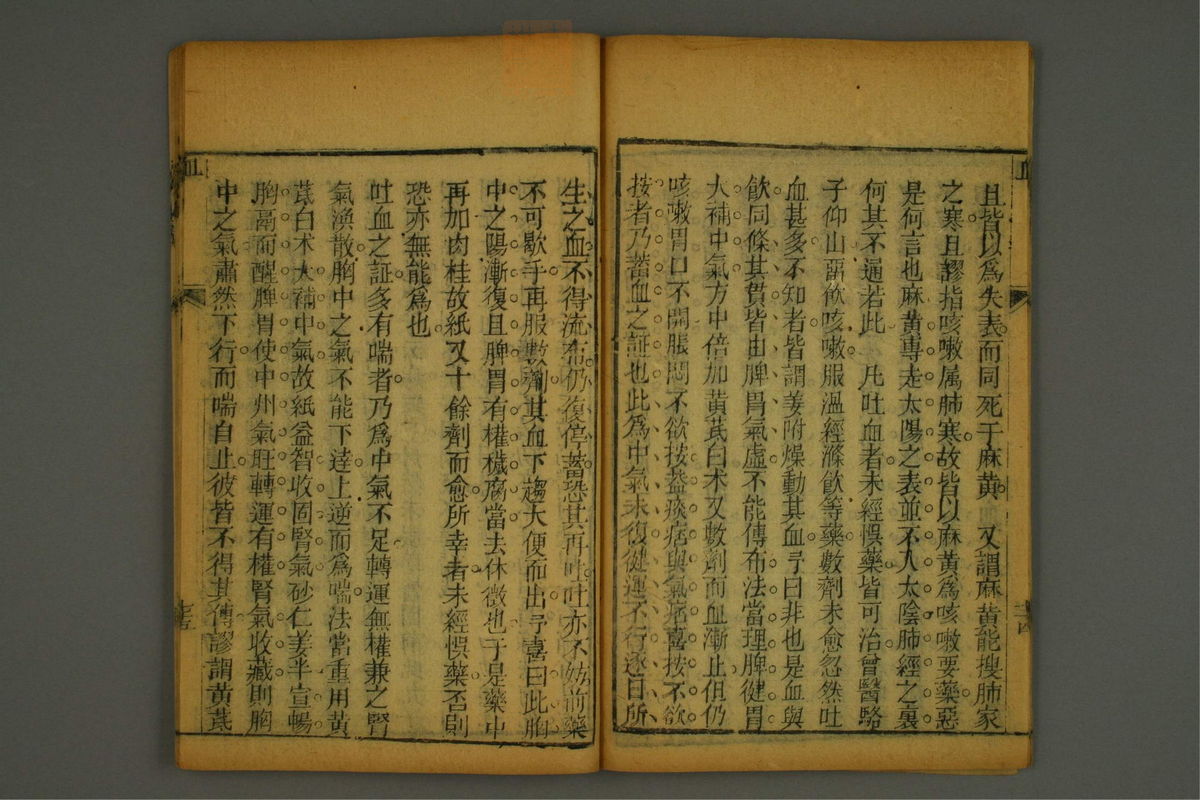 且皆以爲失表而同死于麻黃又謂麻黃能搜肺家
之寒且謬指咳嗽属肺寒故皆以麻黃爲咳嗽要藥惡
是何言也麻黃專走太陽之表並不入太陰肺經之裏
何其不通若此凡吐血者未經悞藥皆可治曾醫駱
子仰山畱飲咳嗽服溫經滌飲等藥數劑未愈忽然吐
血甚多不知者皆謂姜附燥動其血予曰非也是血與
飲同條其貫皆由脾胃氣虛不能傳布法當理脾健胃
大補中氣方中倍加黃茋白术又數劑而血漸止但仍
咳嗽胃口不開脹悶不欲按盖痰痞與氣痞喜按不欲
按者乃蓄血之証也此爲中氣未復健運不行逐日所
生之血不得流布仍復停蓄恐其再吐吐亦不妨前藥
不可歇手再服數劑其血下趨大便而出予喜曰此胸
中之陽漸復且脾胃有權穢腐當去休徵也于是藥中
再加肉桂故紙又十餘劑而愈所幸者未經悞藥否則
恐亦無能爲也
吐血之証多有喘者乃爲中氣不足轉運無權兼之腎
氣渙散胸中之氣不能下達上逆而爲喘法當重用黃
茋白术大補中氣故紙益智收固腎氣砂仁姜半宣暢
胸膈而醒脾胃使中州氣旺轉運有權腎氣收藏則胸
中之氣肅然下行而喘自止彼皆不得其傳謬謂黃茋